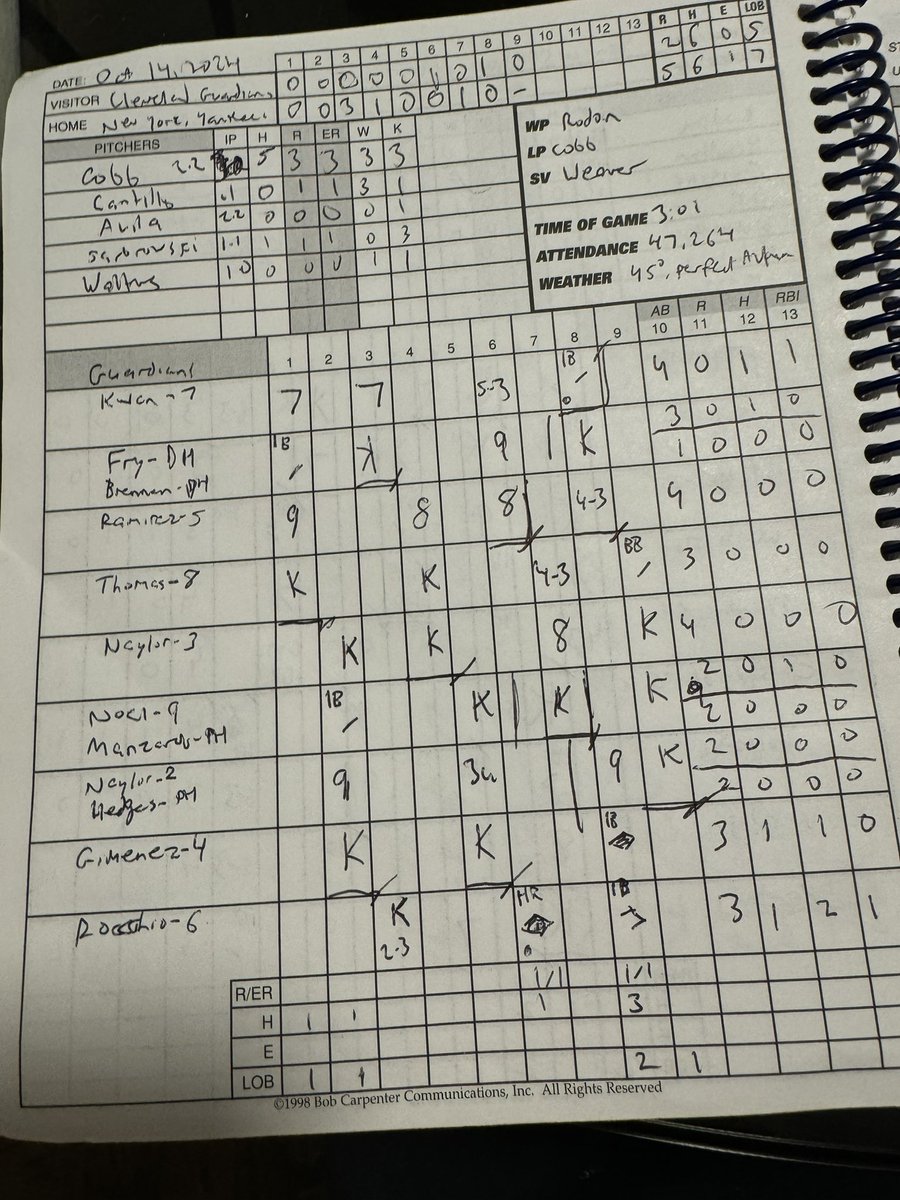 1 2 3 4 5 6 7 8 9 10 11 12 13 R H E LOB
DATE: Oct 14, 2024
VISITOR Cleveland Guardians 0 0 0 0 0 1 0 1 0 2 6 0 5
HOME New York Yankees 0 0 3 1 0 0 1 0 - 5 6 1 7
PITCHERS IP H R ER W K
Cobb 2.2 5 3 3 3 3
Cantillo .1 0 1 1 3 1
Avila 2.2 0 0 0 0 1
1.1 1 1 1 0 3
Walters 1.0 0 0 0 1 1
WP Rodon
LP Cobb
SV Weaver
TIME OF GAME 3:01
ATTENDANCE 47,264
WEATHER 45°, perfect Autumn
Guardians 1 2 3 4 5 6 7 8 9 AB 10 R 11 H 12 RBI 13
Kwan-7 7 7 5-3 1B 4 0 1 1
Fry-DH 1B K 9 K 3 0 1 0
Brennan-PH 1 0 0 0
Ramirez-5 9 8 8 4-3 4 0 0 0
Thomas-8 K K 4-3 BB 3 0 0 0
Naylor-3 K K 8 K 4 0 0 0
Noel-9 1B K K K 2 0 1 0
Manzardo-PH 2 0 0 0
Naylor-2 9 3u 9 K 2 0 0 0
Hedges-PH 2 0 0 0
Gimenez-4 K K 1B 3 1 1 0
Rocchio-6 K 2-3 HR 1B 3 1 2 1
R/ER 1/1 1/1
H 1 1 1 3
E
LOB 1 1 2 1
©1998 Bob Carpenter Communications, Inc. All Rights Reserved